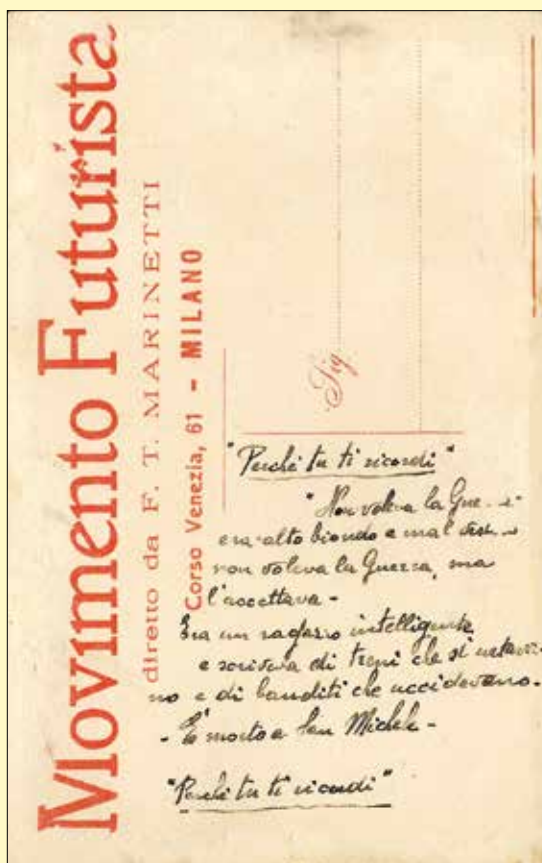 Movimento Futurista
diretto da F. T. MARINETTI
Corso Venezia, 61 - MILANO
Sig
"Perchè tu ti ricordi"
"Non voleva la
era alto biondo e mal
non voleva la Guerra, ma
l'accettava -
Era un ragazzo intelligente
e scriveva di treni che si
no e di banditi che uccidevano.
- È morto a San Michele -
"Perchè tu ti ricordi"